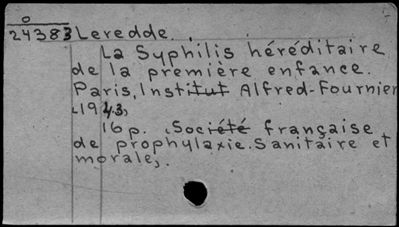 o
24383 Leredde.
La Syphilis héréditaire
de la première enfance.
Paris, Institut Alfred-Fournier
1943,
16 p. (Société française
de prophylaxie Sanitaire et
morale).